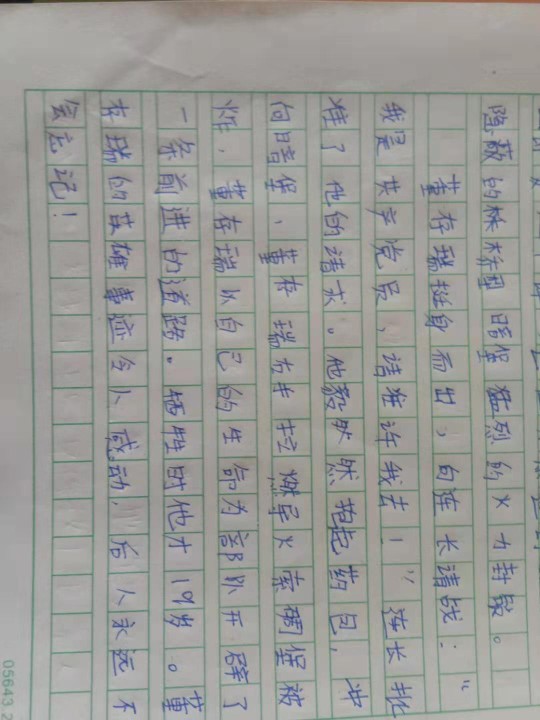 隐蔽的桥型暗堡猛烈的火力封锁。
董存瑞挺身而出，向连长请战：“
我是共产党员，请准许我去！”连长批
准了他的请求。他毅然抱起药包，冲
向暗堡，董存瑞右手拉燃导火索碉堡被
炸，董存瑞以自己的生命为部队开辟了
一条前进的道路。牺牲时他才19岁。董
存瑞的英雄事迹令人感动，后人永远不
会忘记！
05643 2